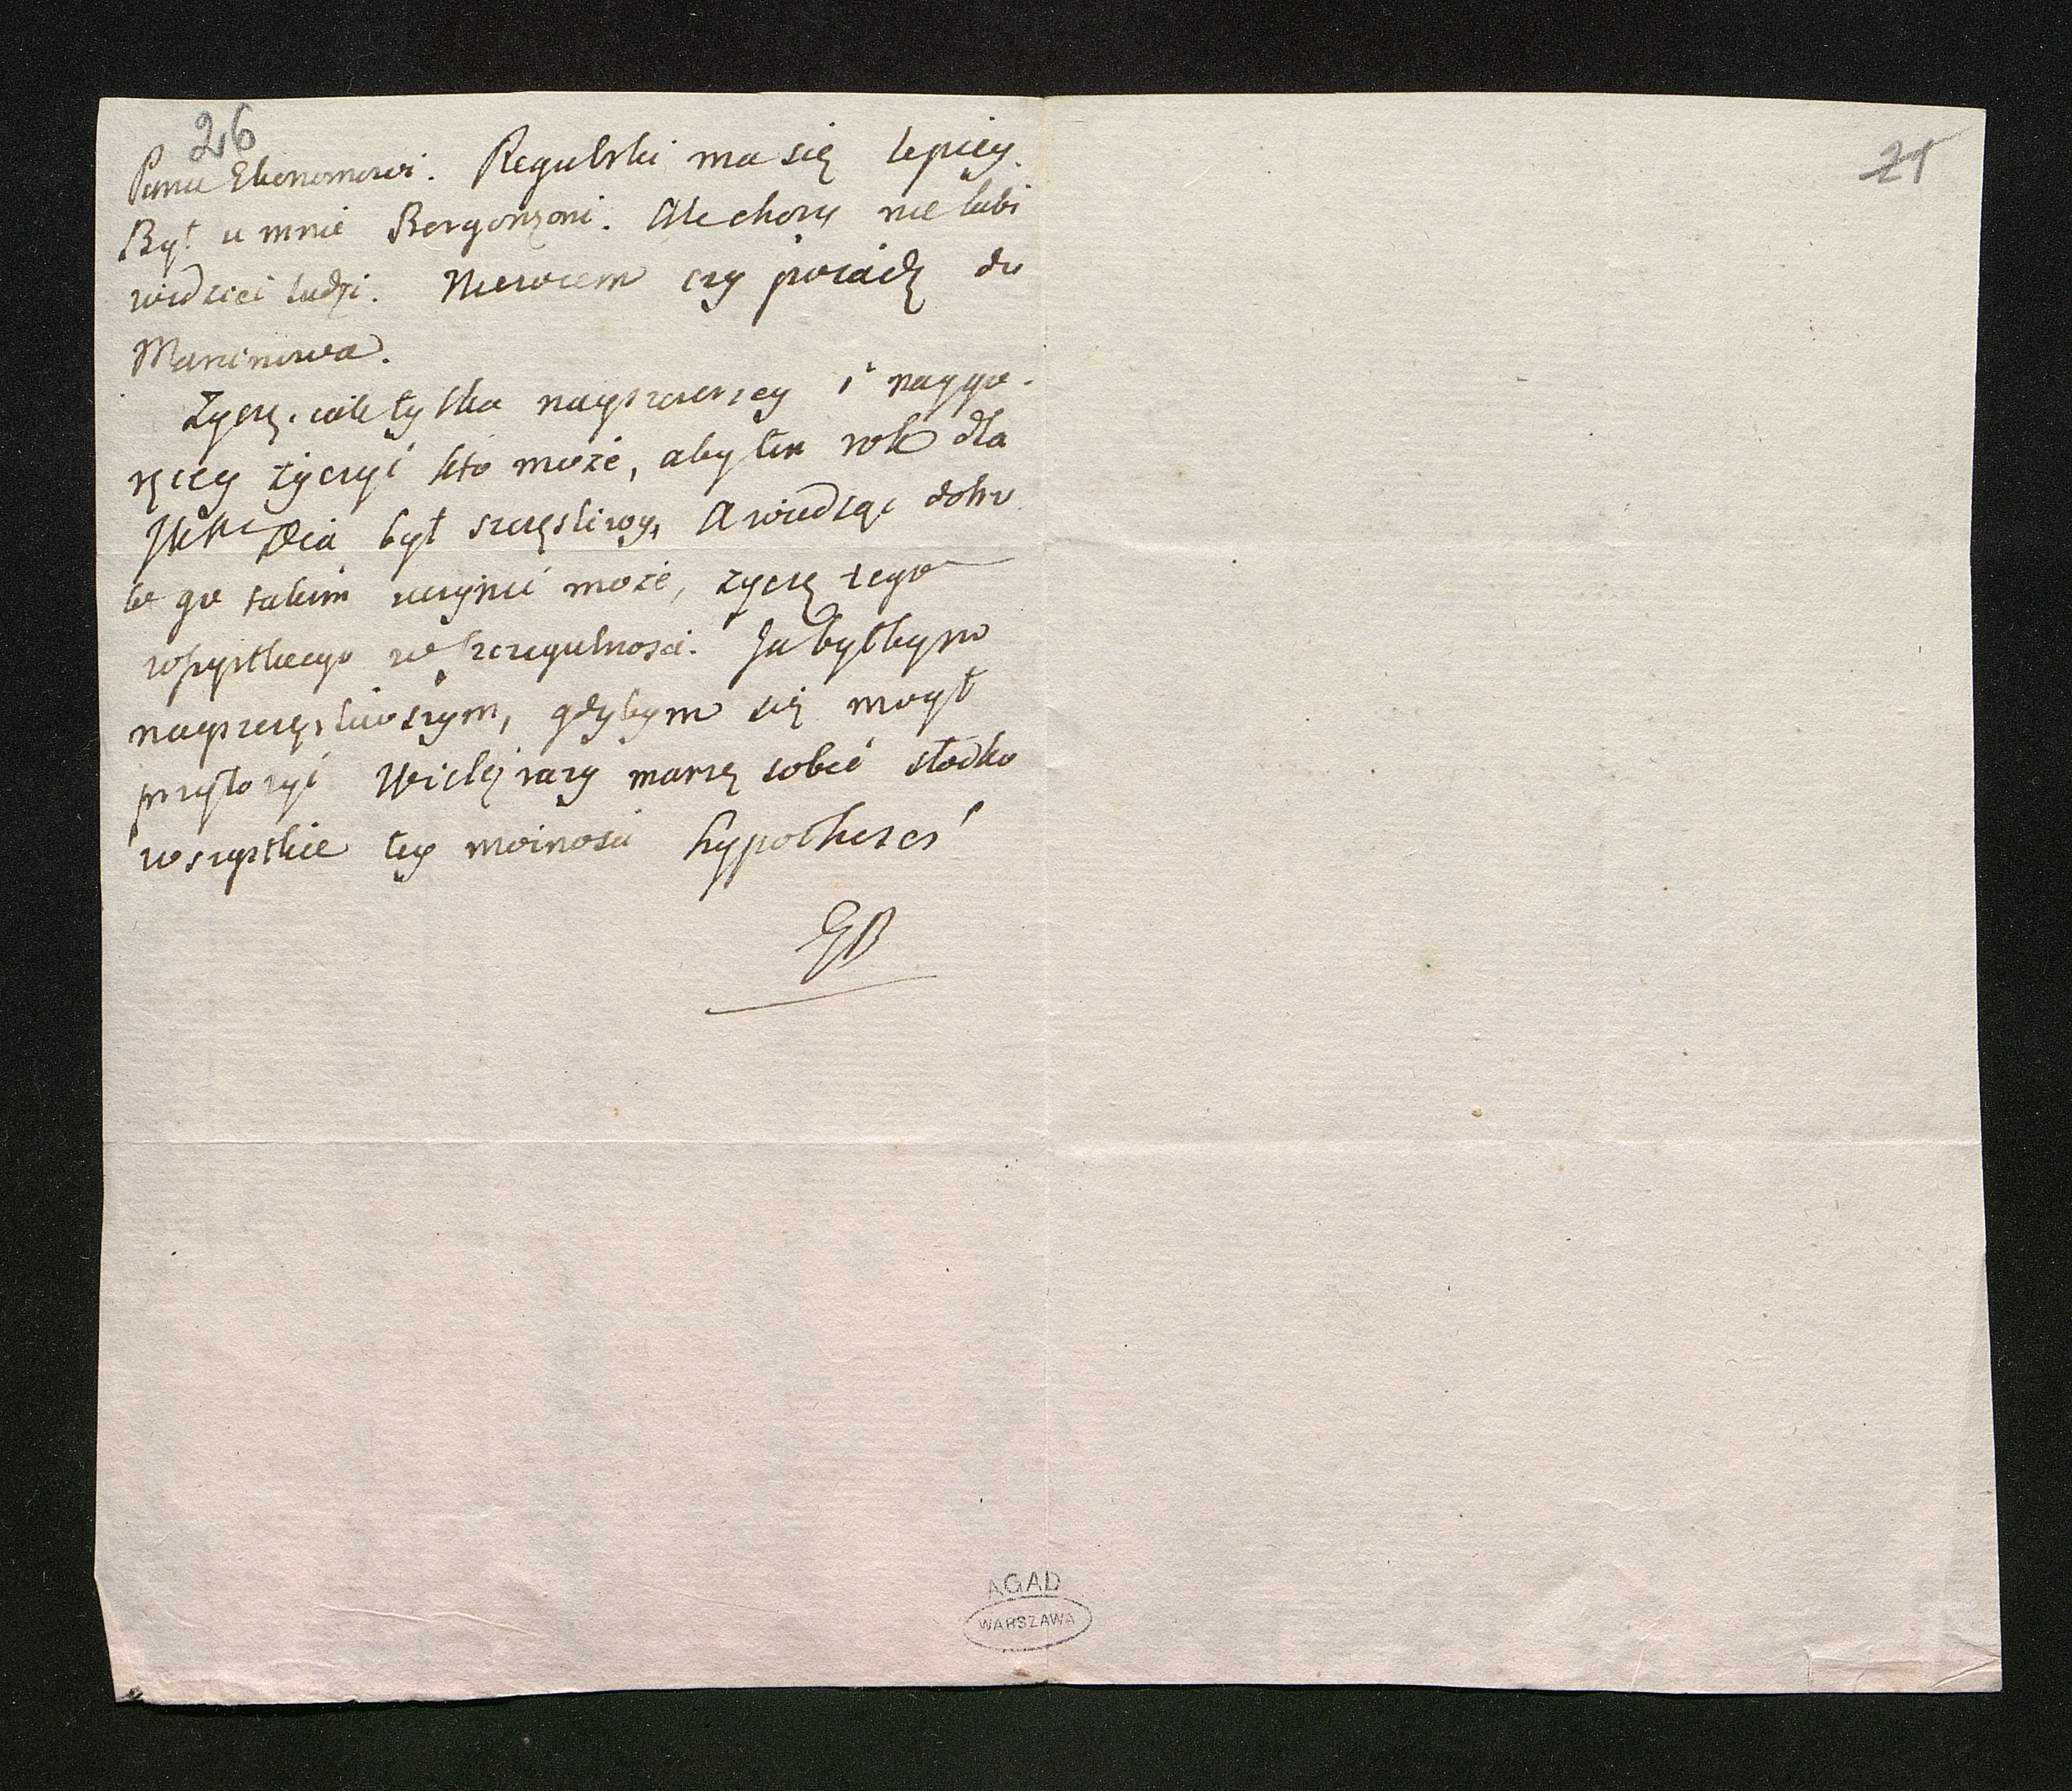 26
Panu Ekonomowi. Regulski ma się lepiey.
Był u mnie Bergonzoni. Ale chory nie lubi
widzieć ludzi. Niewiem czy poiadę do
Marcinowa.
Zyczę, ile tylko nayszczerzey i naygo-
ręcey życzyć kto może, aby ten rok dla
Dia był szczęsliwy, A wiedząc
go takim uczynić może, życzę tego
wszystkiego w szczegulnosci. Ja byłbym
nayszczęsliwszym, gdybym się mogł
przyłożyć Wiele razy marzę sobie słodko
wszystkie tey możnosci hypothezes
GB
21
AGAD
WARSZAWA